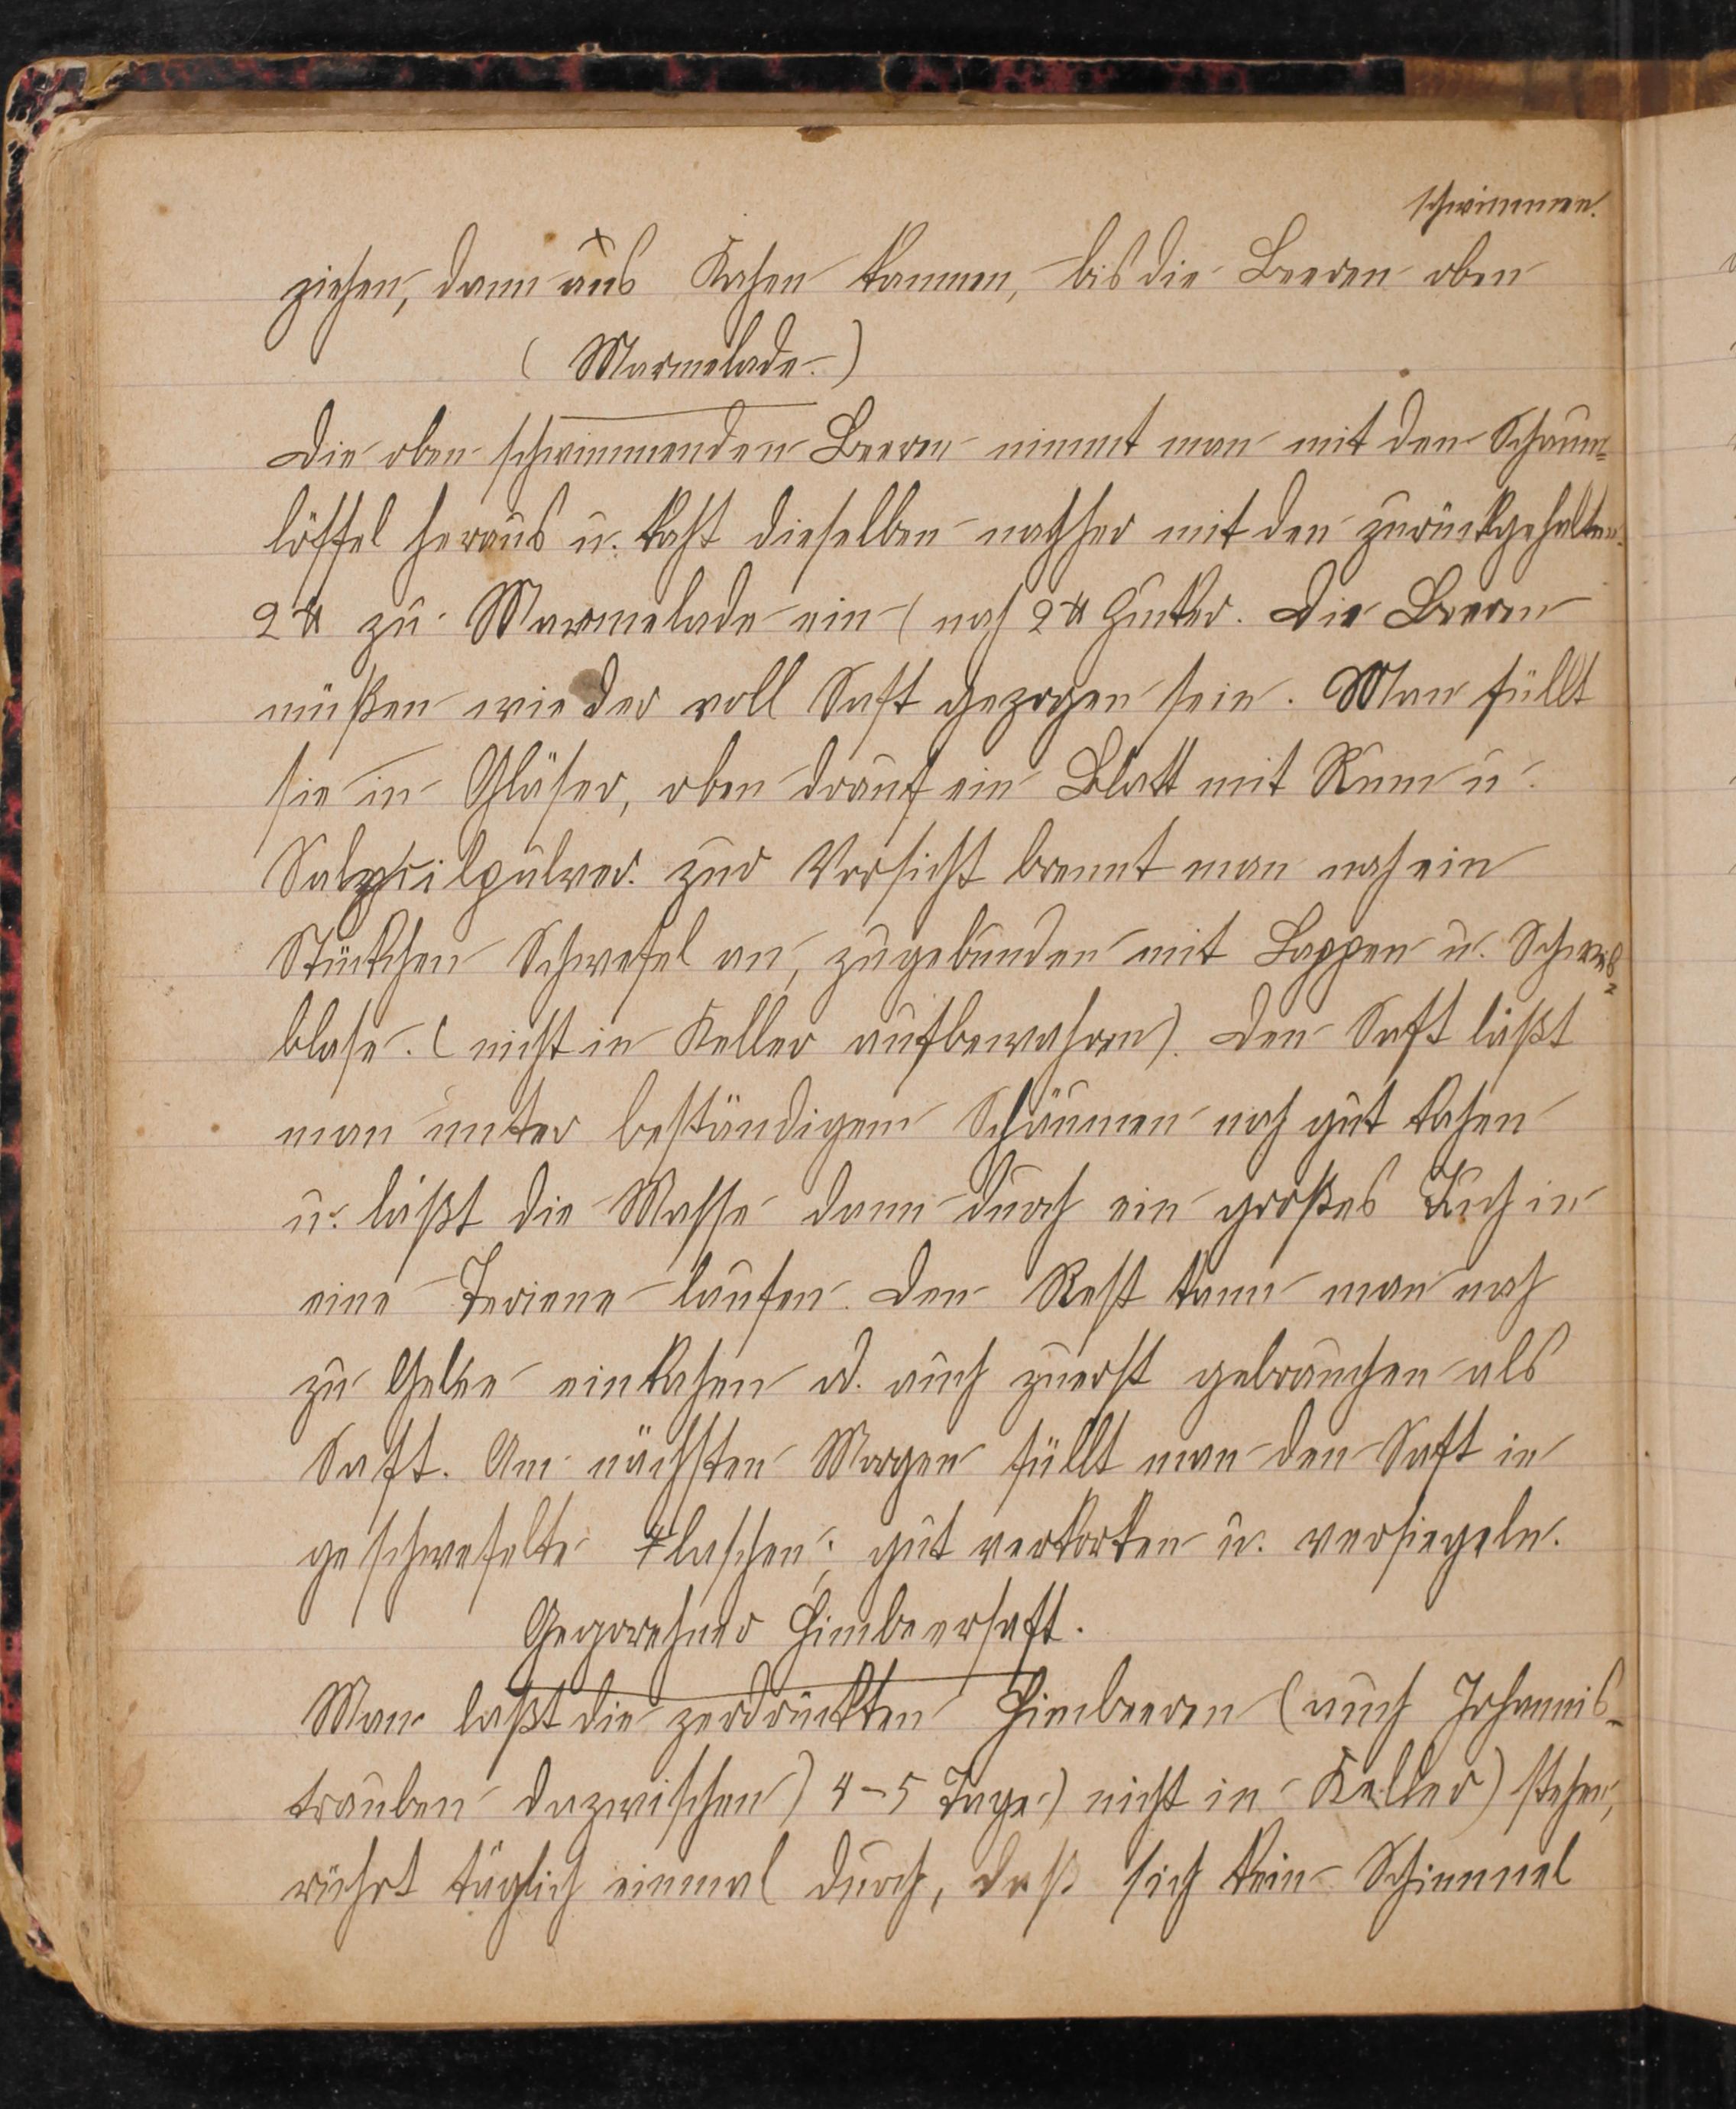 schwimmen.
ziehen, dann aus Kochen kommen, bis die Beeren oben
(Marmelade.)
Die oben schwimmenden Beeren nimmt man mit den Schaum-
löffel heraus u. kocht dieselben nachher mit den zurückgehalten
2 ℔ zu Marmelade ein (noch 2 ℔ Zucker. Die Beeren
müßen wieder voll Saft gezogen sein. Man füllt
sie in Gläser, oben drauf ein Blatt mit Rum u.
Salycilpulver. zur Vorsicht brennt man noch ein
Stückchen Schwefel an, zugebunden mit Lappen u. Schweins-
blase. (nicht in Keller aufbewahren). Den Saft läßt
man unter beständigem Schäumen noch gut kochen
u. läßt die Masse dann durch ein großes Tuch in
eine Teriene laufen. Den Rest kann man noch
zu Gelee einkochen od. auch zuerst gebrauchen als
Saft. Am nächsten Morgen füllt man den Saft in
geschwefelte Flaschen; gut verkorken u. versiegeln.
Gegorehner Himbeersaft.
Man laßt die zerdrückten Himbeeren (auch Johannis-
trauben dazwischen) 4-5 Tage) nicht in Keller) stehen,
rührt täglich einmal durch, daß sich kein Schimmel